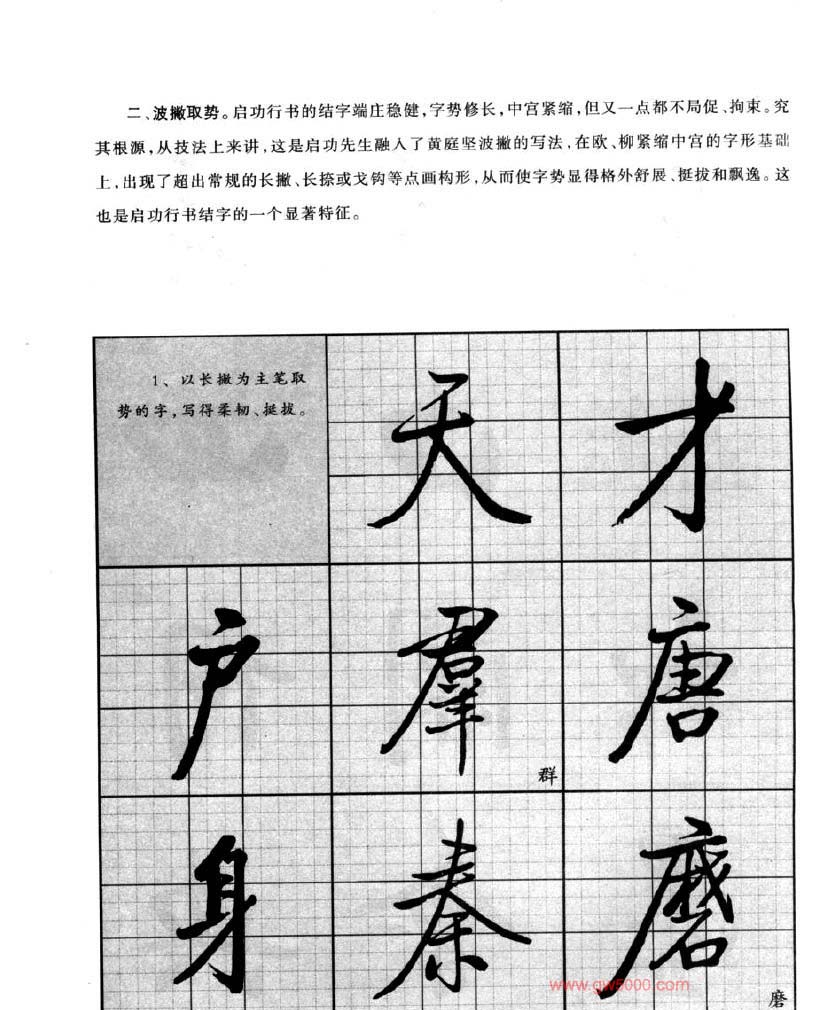 二、波撇取势。启功行书的结字端庄稳健,字势修长,中宫紧缩,但又一点都不局促、拘束。究
其根源,从技法上来讲,这是启功先生融入了黄庭坚波撇的写法,在欧、柳紧缩中宫的字形基础
上,出现了超出常规的长撇、长捺或戈钩等点画构形,从而使字势显得格外舒展、挺拔和飘逸。这
也是启功行书结字的一个显著特征。
1、以长撇为主笔取
势的字,写得柔韧、挺拔。
天 才
户 羣 唐
群
身 秦 磨
www.gw5000.com
磨